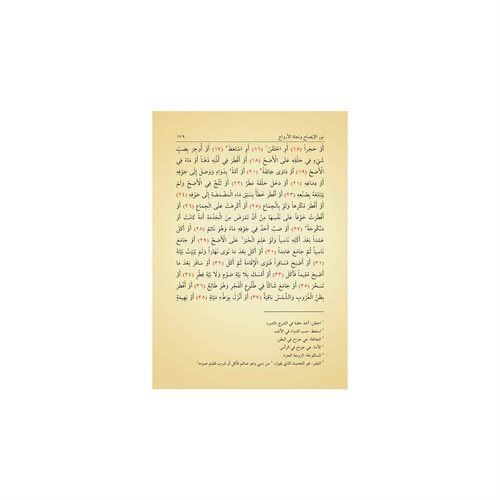 نور الإيضاح ونجاة الأرواح ١٧٩
أَوْ حَجَراً (١٥) أَوِ احْتَقَنَ١ (١٦) أَوِ اسْتَعَطَ٢ (١٧) أَوْ أَوْجَرَ بِصَبِّ
شَيْءٍ فِي حَلْقِهِ عَلَى الْأَصَحِّ (١٨) أَوْ أَقْطَرَ فِي أُذُنِهِ دُهْناً أَوْ مَاءً فِي
الْأَصَحِّ (١٩) أَوْ دَاوَى جَائِفَةً٣ (٢٠) أَوْ آمَّةً٤ بِدَوَاءٍ وَوَصَلَ إِلَى جَوْفِهِ
أَوْ دِمَاغِهِ (٢١) أَوْ دَخَلَ حَلْقَهُ مَطَرٌ (٢٢) أَوْ ثَلْجٌ فِي الْأَصَحِّ وَلَمْ
يَبْتَلِعْهُ بِصُنْعِهِ (٢٣) أَوْ أَفْطَرَ خَطَأً بِسَبْقِ مَاءِ الْمَضْمَضَةِ إِلَى جَوْفِهِ (٢٤)
أَوْ أَفْطَرَ مُكْرَهاً وَلَوْ بِالْجِمَاعِ (٢٥) أَوْ أُكْرِهَتْ عَلَى الْجِمَاعِ (٢٦) أَوْ
أَفْطَرَتْ خَوْفاً عَلَى نَفْسِهَا مِنْ أَنْ تَمْرَضَ مِنَ الْخِدْمَةِ أَمَةً كَانَتْ أَوْ
مَنْكُوحَةً٥ (٢٧) أَوْ صَبَّ أَحَدٌ فِي جَوْفِهِ مَاءً وَهُوَ نَائِمٌ (٢٨) أَوْ أَكَلَ
عَمْداً بَعْدَ أَكْلِهِ نَاسِياً وَلَوْ عَلِمَ الْخَبَرَ٦ عَلَى الْأَصَحِّ (٢٩) أَوْ جَامَعَ
نَاسِياً ثُمَّ جَامَعَ عَامِداً (٣٠) أَوْ أَكَلَ بَعْدَ مَا نَوَى نَهَاراً وَلَمْ يُبَيِّتْ نِيَّتَهُ
(٣١) أَوْ أَصْبَحَ مُسَافِراً فَنَوَى الْإِقَامَةَ ثُمَّ أَكَلَ (٣٢) أَوْ سَافَرَ بَعْدَ مَا
أَصْبَحَ مُقِيماً فَأَكَلَ (٣٣) أَوْ أَمْسَكَ بِلَا نِيَّةِ صَوْمٍ وَلَا نِيَّةِ فِطْرٍ (٣٤) أَوْ
تَسَحَّرَ (٣٥) أَوْ جَامَعَ شَاكّاً فِي طُلُوعِ الْفَجْرِ وَهُوَ طَالِعٌ (٣٦) أَوْ أَفْطَرَ
بِظَنِّ الْغُرُوبِ وَالشَّمْسُ بَاقِيَةٌ (٣٧) أَوْ أَنْزَلَ بِوَطْءِ مَيْتَةٍ (٣٨) أَوْ بَهِيمَةٍ
١ احتقن: أخذ حقنة في الشرج بالمبرد.
٢ استعط: صب الدواء في الأنف.
٣ الجائفة: هي جراح في البطن.
٤ الآمة: هي جراح في الرأس.
٥ المنكوحة: الزوجة الحرة.
٦ الخبر: هو الحديث الذي يقول: "من نسي وهو صائم فأكل أو شرب فليتم صومه"